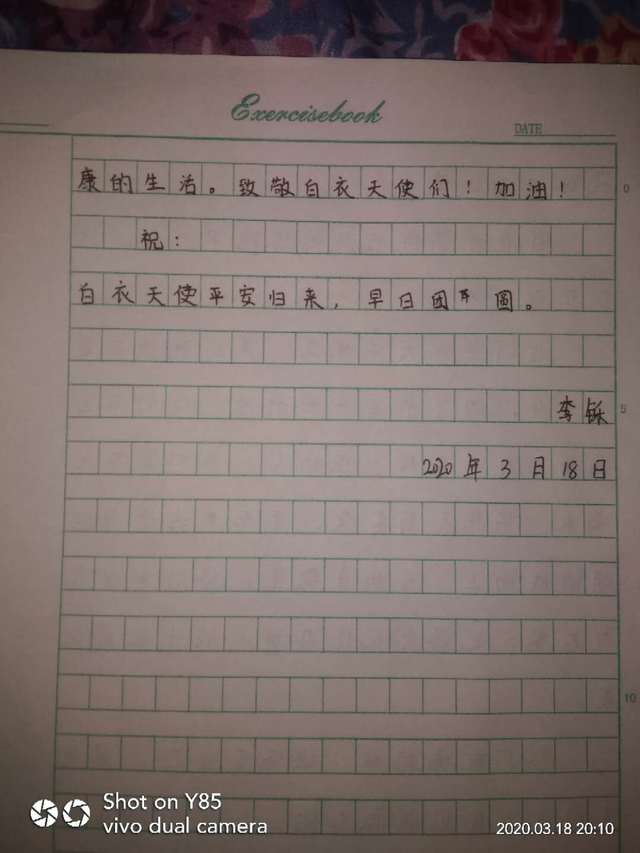 Exercisebook
DATE
康的生活。致敬白衣天使们！加油！
0
祝：
白衣天使平安归来，早日团圆。
李铄
5
2020年3月18日
10
Shot on Y85
vivo dual camera
2020.03.18 20:10